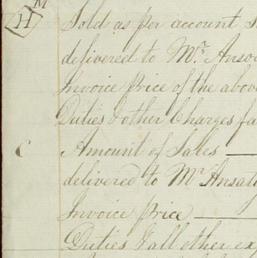 M
H
Sold as per account
delivered to Mr. Anso
Invoice Price of the abov
Duties & other Charges
C Amount of Sales
delivered to Mr Ansal
Invoice Price
Duties & all other ex